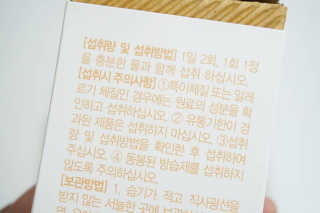 [섭취량 및 섭취방법] 1일 2회, 1회 1정
을 충분한 물과 함께 섭취 하십시오.
[섭취시 주의사항] ①특이체질 또는 알레
르기 체질인 경우에는 원료의 성분을 확
인하고 섭취하십시오. ② 유통기한이 경
과된 제품은 섭취하지 마십시오. ③섭취
량 및 섭취방법을 확인한 후 섭취하여
주십시오. ④ 동봉된 방습제를 섭취하지
않도록 주의하십시오.
[보관방법] 1. 습기가 적고 직사광선을
받지 않는 서늘한 곳에